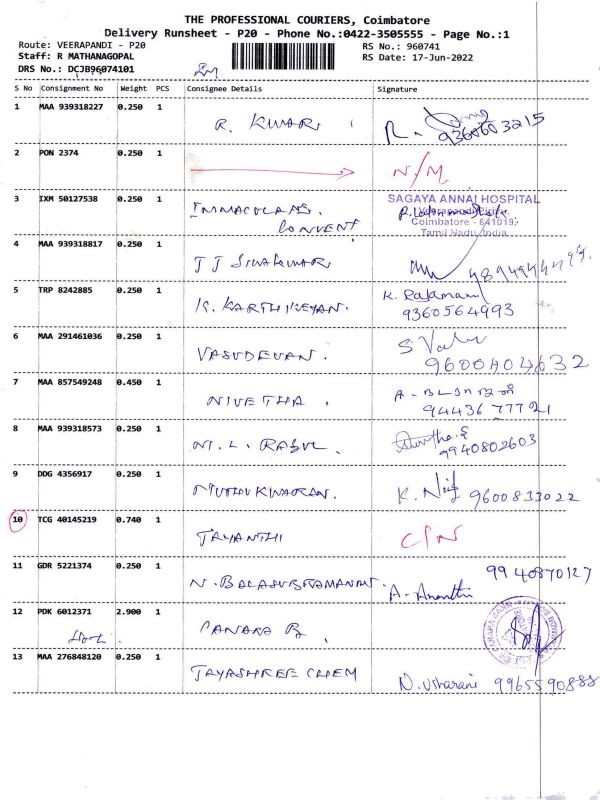 THE PROFESSIONAL COURIERS, Coimbatore
Delivery Runsheet - P20 - Phone No.:0422-3505555 - Page No.:1
Route: VEERAPANDI - P20 RS No.: 960741
Staff: R MATHANAGOPAL RS Date: 17-Jun-2022
DRS No.: DCJB96074101
S No Consignment No Weight PCS Consignee Details Signature
1 MAA 939318227 0.250 1
R. KUMAR 9360603215
2 PON 2374 0.250 1 N/M
3 IXM 50127538 0.250 1 IMMACULANS. SAGAYA ANNAI HOSPITAL
CONVENT Coimbatore - 641019.
Tamil Nadu, India
4 MAA 939318817 0.250 1
T J SIVAKUMAR
5 TRP 8242885 0.250 1 K. Rajamani
K. KARTHIKEYAN. 9360564993
6 MAA 291461036 0.250 1
VASUDEVAN. 9600404632
7 MAA 857549248 0.450 1
NIVETHA . 9443677721
8 MAA 939318573 0.250 1
M. L. RABUL . 9940802603
9 DDG 4356917 0.250 1
MUTHUKUMARAN. 9600833022
10 TCG 40145219 0.740 1
JAYANTHI C/N
11 GDR 5221374 0.250 1 9940870127
N. BALASUBRAMANIAN. A. Ananthi
12 PDK 6012371 2.900 1
CANARA B.
13 MAA 276848120 0.250 1
JAYASHREE CHEM N. Usharani 9965590888